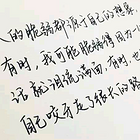 人的脆弱都源于自己的想象
有时，我可能脆弱得因为一句
话就泪流满面，有时，也
自己咬牙走了很长的路